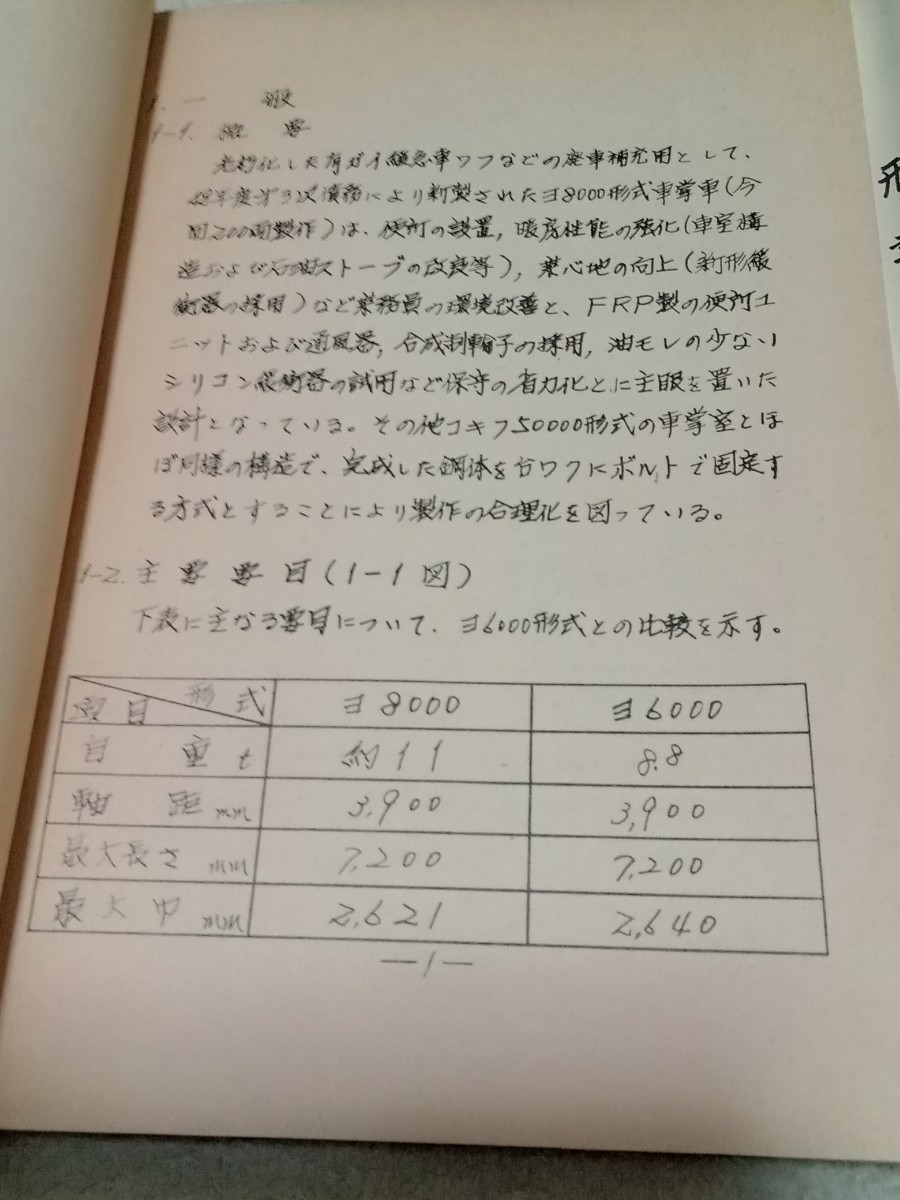 1. 一 般
1-1. 概 要
老朽化した有ガイ緩急車ワフなどの廃車補充用として、
48年度第3次債務により新製されたヨ8000形式車掌車(今
回200両製作)は、便所の設置,暖房性能の強化(車室構
造および石油ストーブの改良等),乗心地の向上(新形緩
衝器の採用)など乗務員の環境改善と、FRP製の便所ユ
ニットおよび通風器,合成制輪子の採用,油モレの少ない
シリコン緩衝器の試用など保守の省力化とに主眼を置いた
設計となっている。その他コキフ50000形式の車掌室とほ
ぼ同様の構造で、完成した鋼体を台ワクにボルトで固定す
る方式とすることにより製作の合理化を図っている。
1-2. 主要要目(1-1図)
下表に主なる要目について、ヨ6000形式との比較を示す。
形式
要目 ヨ8000 ヨ6000
自重 t 約11 8.8
軸距 mm 3,900 3,900
最大長さ mm 7,200 7,200
最大巾 mm 2,621 2,640
—1—
形